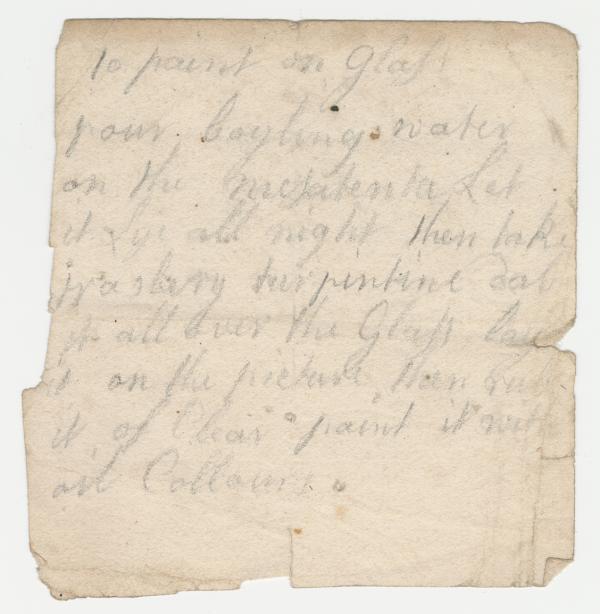 to paint on Glass
pour boyling water
on the metzatenta Let
it Lye all night then take
frasbury turpintine dab
it all over the Glass Lay
it on the picture then rub
it of Clear paint it with
oil Collours.